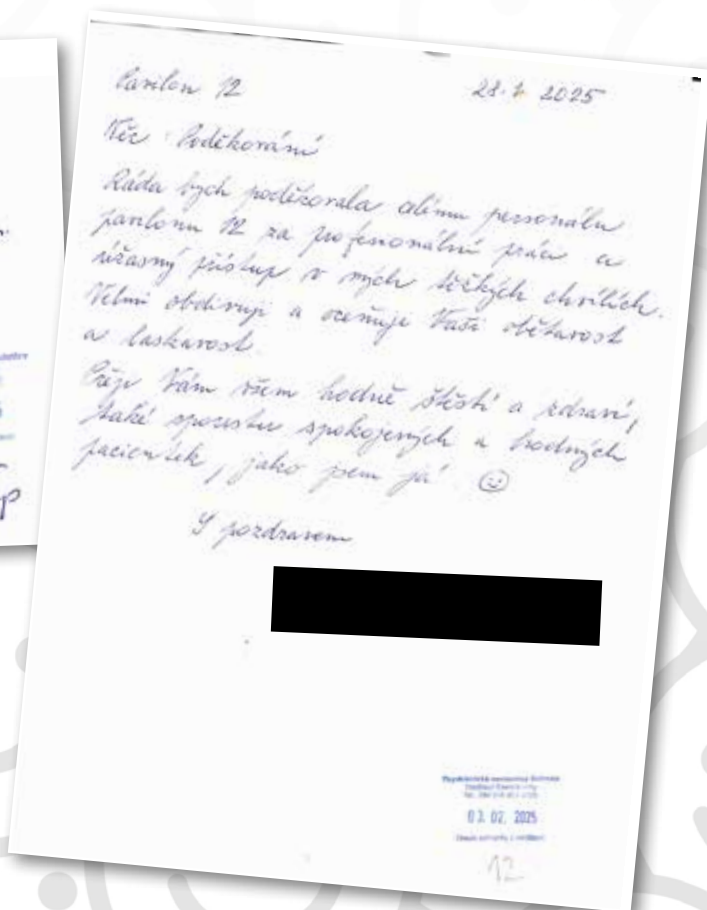 Pavilon 12 28. 1. 2025
Věc: Poděkování
Ráda bych poděkovala celému personálu
pavilonu 12 za profesionální práci a
úžasný přístup v mých těžkých chvílích.
Velmi obdivuji a oceňuji Vaši obětavost
a laskavost.
Přeji Vám všem hodně štěstí a zdraví,
také spoustu spokojených a hodných
pacientek, jako jsem já
S pozdravem
03. 02. 2025
12